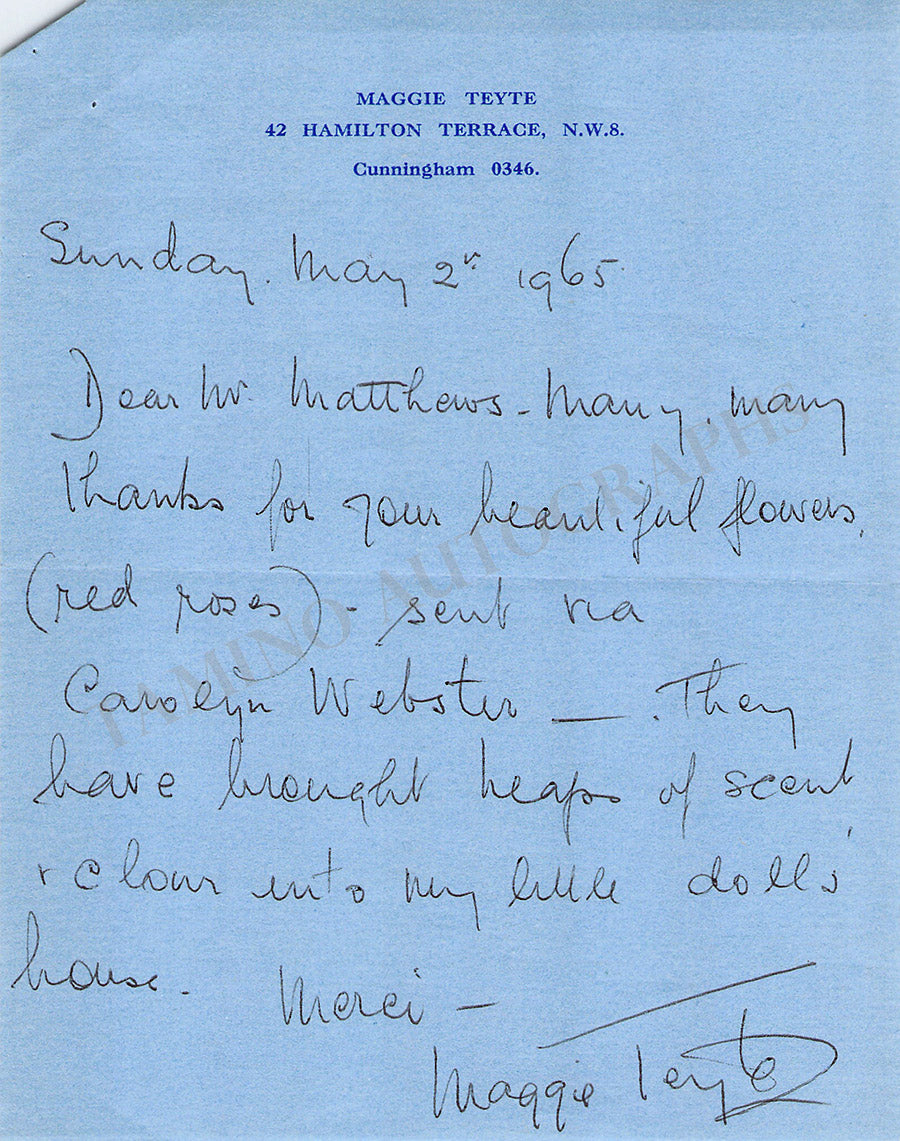 MAGGIE TEYTE
42 HAMILTON TERRACE, N.W.8.
Cunningham 0346.
Sunday. May 2nd 1965.
Dear Mr. Matthews - Many, many
thanks for your beautiful flowers,
(red roses) - sent via
Carolyn Webster — . They
have brought heaps of scent,
+ colour into my little dolls'
house.
Merci —
Maggie Teyte
TAMINO AUTOGRAPHS